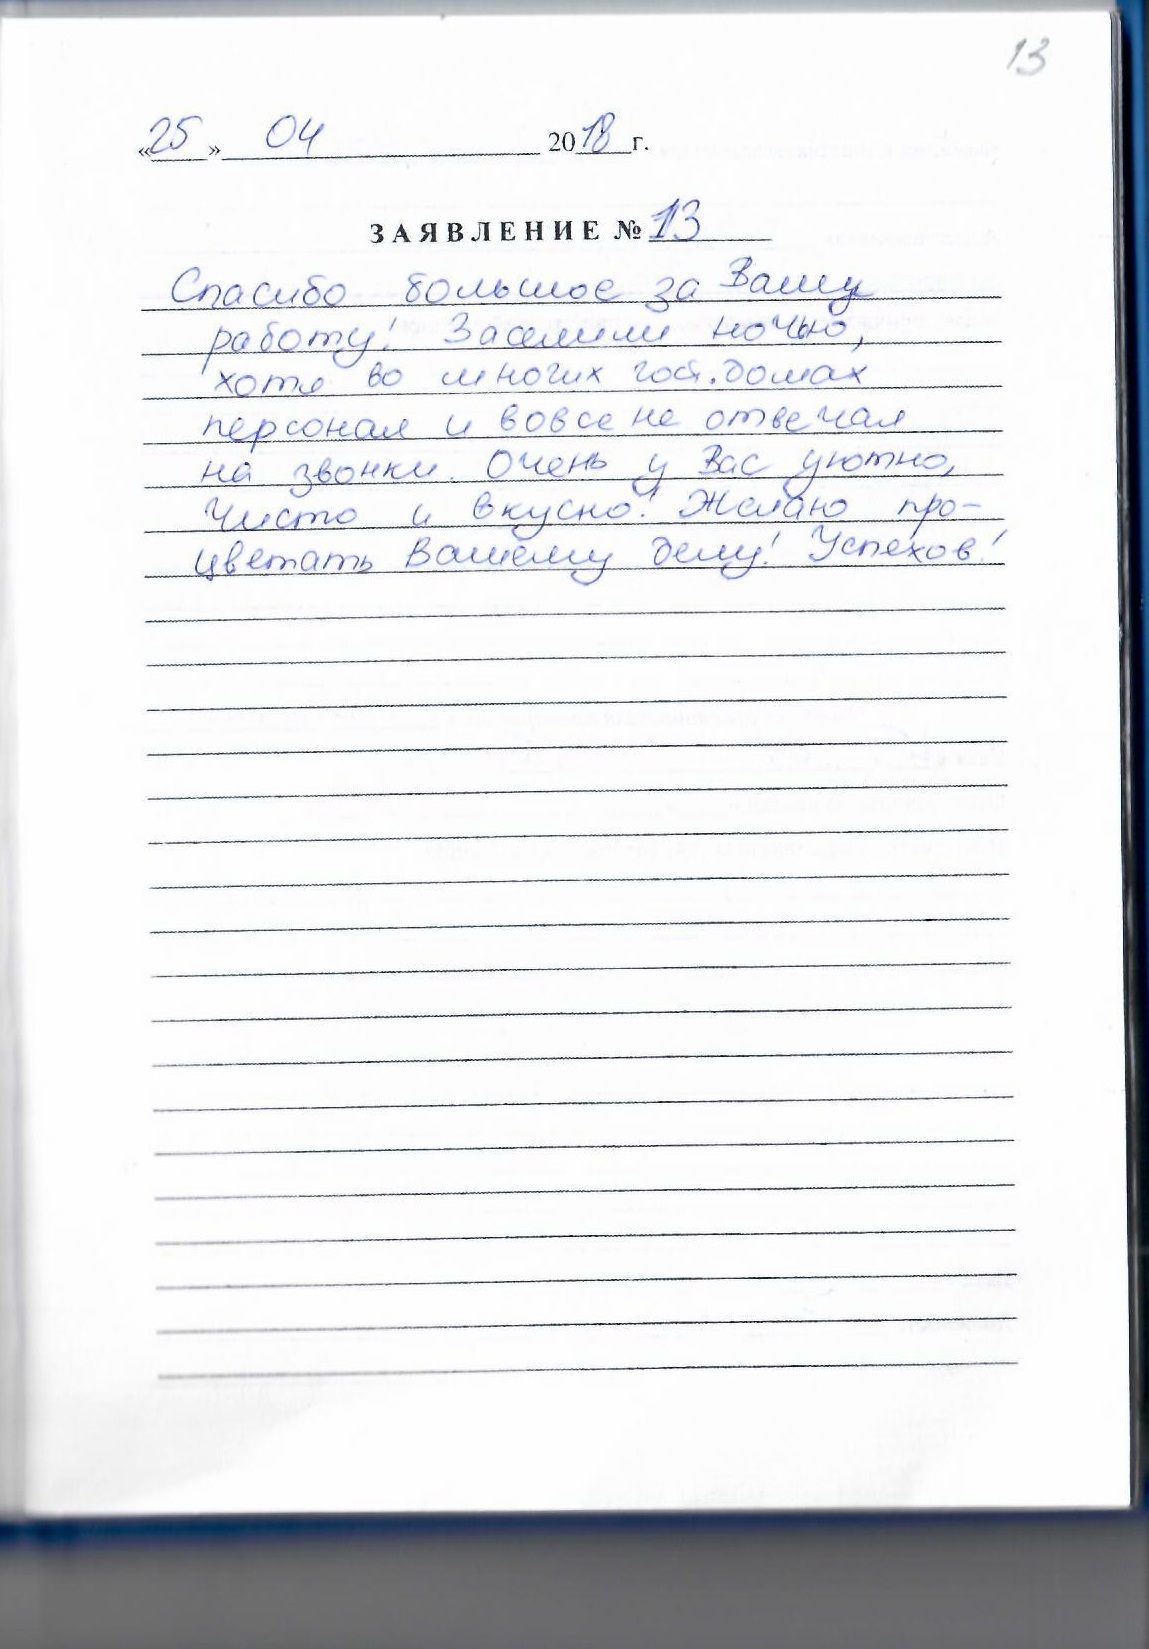 13
«25» 04 2018 г.
ЗАЯВЛЕНИЕ № 13
Спасибо большое за Вашу
работу! Заселили ночью,
хотя во многих гост. домах
персонал и вовсе не отвечал
на звонки. Очень у Вас уютно,
чисто и вкусно! Желаю про-
цветать Вашему делу! Успехов!